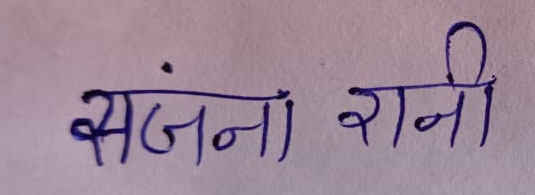 संजना रानी